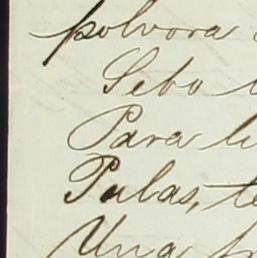 polvora
Sebo
Para
Palas, te
Una